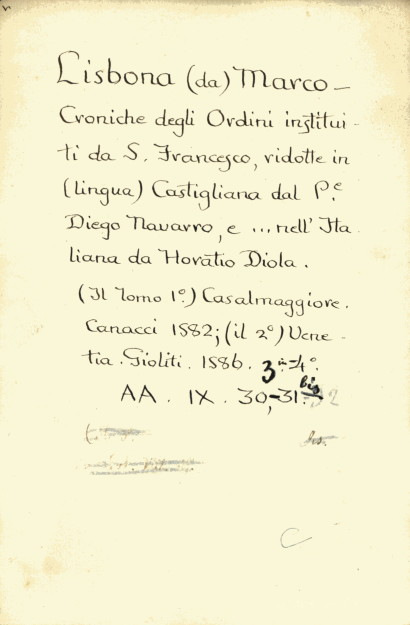 Lisbona (da) Marco –
Croniche degli Ordini institui-
ti da S. Francesco, ridotte in
(lingua) Castigliana dal P.e
Diego Navarro, e ... nell' Ita
liana da Horatio Diola.
(Il Tomo 1º) Casalmaggiore.
Canacci 1582; (il 2º) Vene-
tia. Gioliti. 1586. 3 in-4º.
AA. IX. 30,-31. bis 32
bis.
C